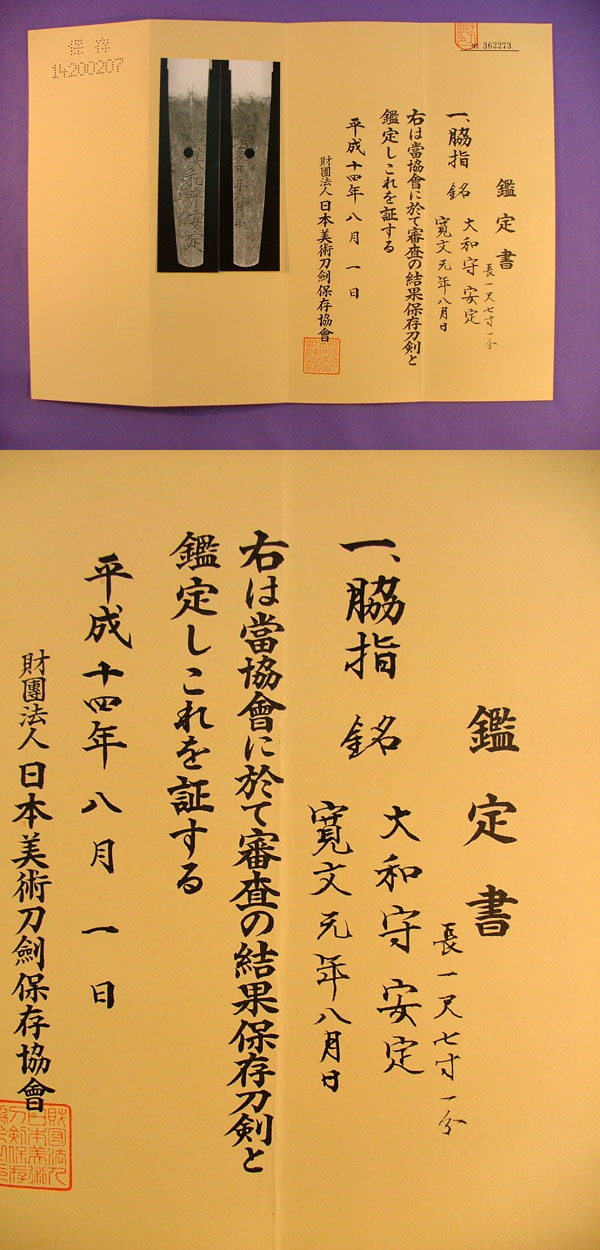 保存
14200207
№ 362273
鑑定書
長一尺七寸一分
一、脇指 銘 大和守安定
寛文元年八月日
右は當協會に於て審査の結果保存刀剣と
鑑定しこれを証する
平成十四年八月一日
財團法人日本美術刀剣保存協會
鑑定書
長一尺七寸一分
一、脇指 銘 大和守安定
寛文元年八月日
右は當協會に於て審査の結果保存刀剣と
鑑定しこれを証する
平成十四年八月一日
財團法人日本美術刀劍保存協會